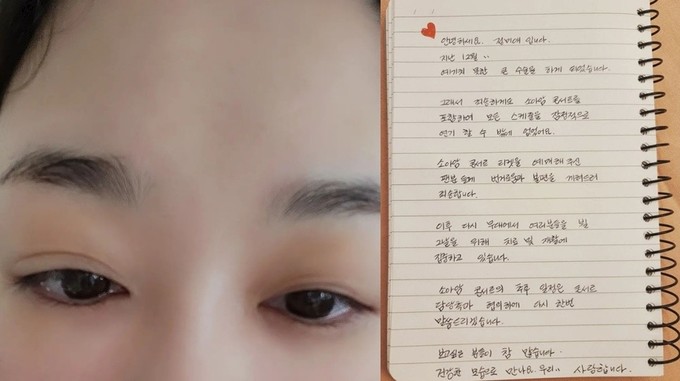 안녕하세요. 정미애 입니다.
지난 12월..
예기치 못한 큰 수술을 하게 되었습니다.
그래서 죄송하게도 소아암 콘서트를
포함하여 모든 스케줄을 잠정적으로
연기 할 수 밖에 없었어요.
소아암 콘서트 티켓을 예매해 주신
팬분들께 번거로움과 불편을 끼쳐드려
죄송합니다.
이후 다시 무대에서 여러분들을 뵐
그날을 위해 치료 및 재활에
집중하고 있습니다.
소아암 콘서트의 추후 일정은 콘서트
담당측과 협의하에 다시 한번
말씀드리겠습니다.
보고싶은 분들이 참 많습니다.
건강한 모습으로 만나요. 우리.. 사랑합니다.